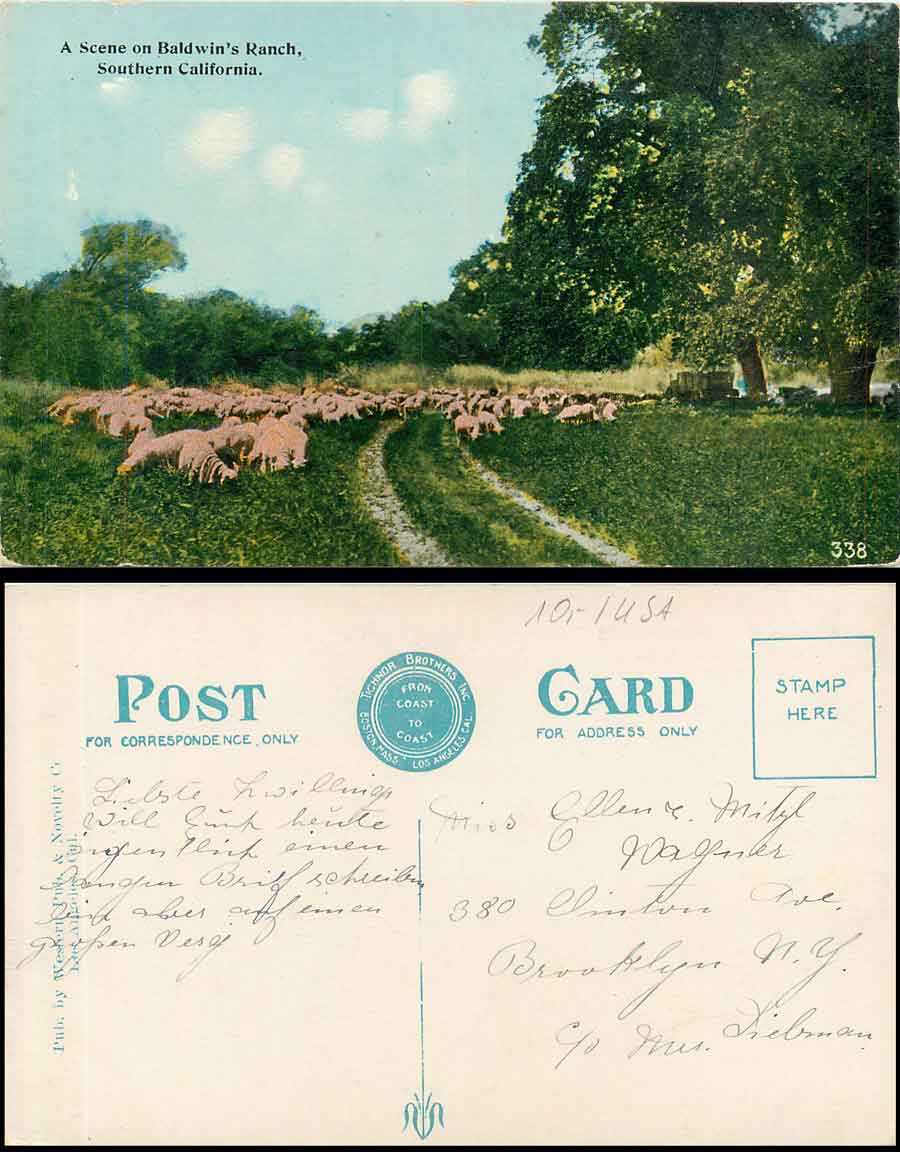 A Scene on Baldwin's Ranch,
Southern California.
338
10,- / USA
POST
FOR CORRESPONDENCE ONLY
TICHNOR BROTHERS INC.
BOSTON, MASS. LOS ANGELES CAL.
FROM
COAST
TO
COAST
CARD
FOR ADDRESS ONLY
STAMP
HERE
Pub. by Western Pub. & Novelty C
Los Angeles, Cal.
Liebste Zwillinge
will Euch heute
einen
langen Brief schreiben
bin aber auf einen
großen Berg
Miss Ellen & Mitzl
Wagner
380 Clinton Ave.
Brooklyn N.Y.
c/o Mrs. Liebman